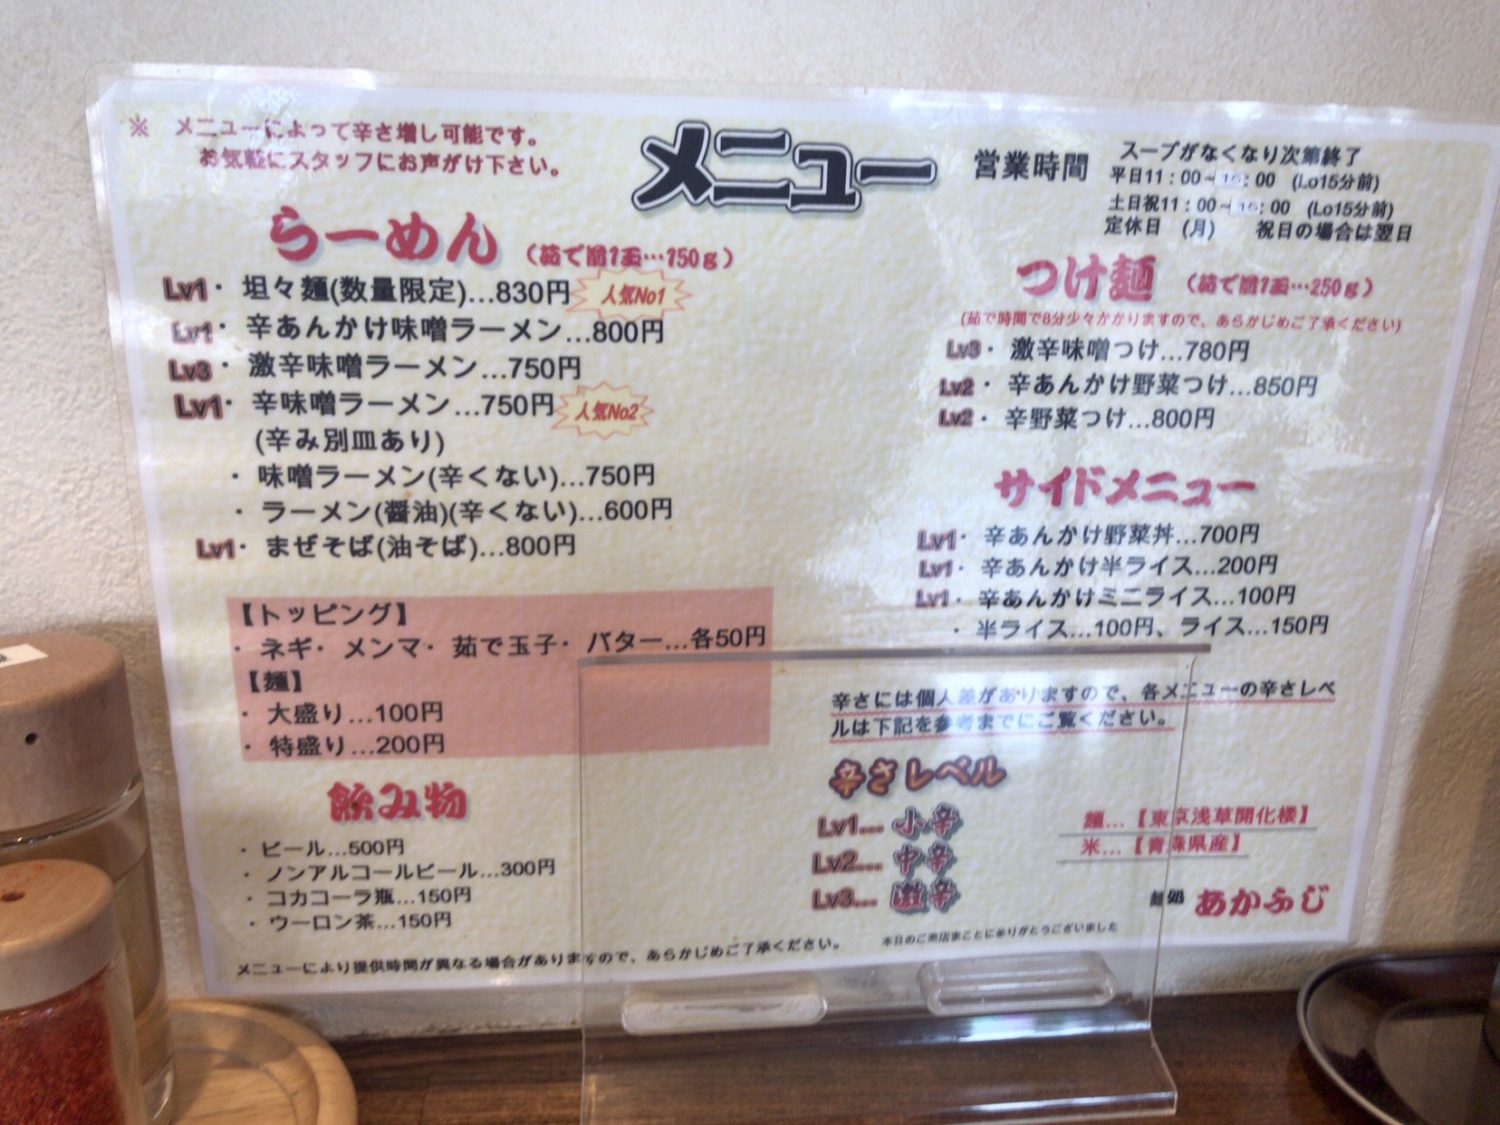 ※ メニューによって辛さ増し可能です。
お気軽にスタッフにお声がけ下さい。
メニュー
営業時間
スープがなくなり次第終了
平日11：00~ :00 (Lo15分前)
土日祝11：00~ :00 (Lo15分前)
定休日 (月) 祝日の場合は翌日
らーめん (茹で前1玉…150g)
Lv1・坦々麺(数量限定)…830円 人気No1
Lv1・辛あんかけ味噌ラーメン…800円
Lv3・激辛味噌ラーメン…750円
Lv1・辛味噌ラーメン…750円 人気No2
(辛み別皿あり)
・味噌ラーメン(辛くない)…750円
・ラーメン(醤油)(辛くない)…600円
Lv1・まぜそば(油そば)…800円
【トッピング】
・ネギ・メンマ・茹で玉子・バター…各50円
【麺】
・大盛り…100円
・特盛り…200円
飲み物
・ビール…500円
・ノンアルコールビール…300円
・コカコーラ瓶…150円
・ウーロン茶…150円
メニューにより提供時間が異なる場合がありますので、あらかじめご了承ください。
つけ麺 (茹で前1玉…250g)
(茹で時間で8分少々かかりますので、あらかじめご了承ください)
Lv3・激辛味噌つけ…780円
Lv2・辛あんかけ野菜つけ…850円
Lv2・辛野菜つけ…800円
サイドメニュー
Lv1・辛あんかけ野菜丼…700円
Lv1・辛あんかけ半ライス…200円
Lv1・辛あんかけミニライス…100円
・半ライス…100円、ライス…150円
辛さには個人差がありますので、各メニューの辛さレベ
ルは下記を参考までにご覧ください。
辛さレベル
Lv1…小辛
Lv2…中辛
Lv3…激辛
麺…【東京浅草開化楼】
米…【青森県産】
麺処 あかふじ
本日のご来店まことにありがとうございました